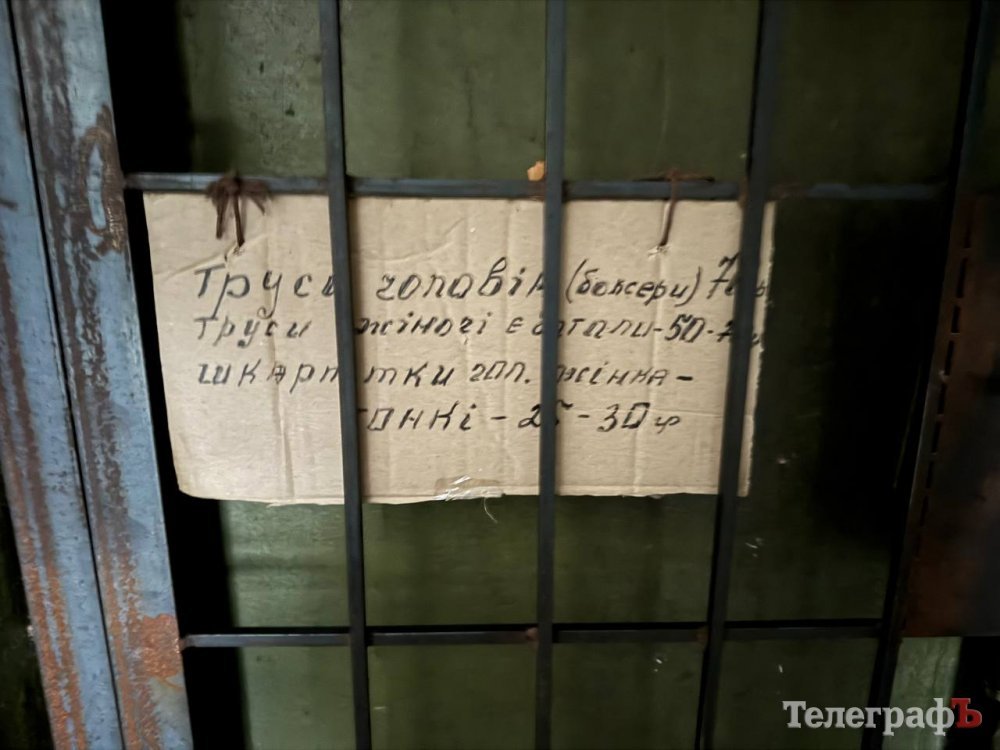 Труси чоловік (боксери)
труси жіночі є батали-50-
шкарпетки чол. жінка-
тонкі - 25-30 гр
ТелеграфЪ